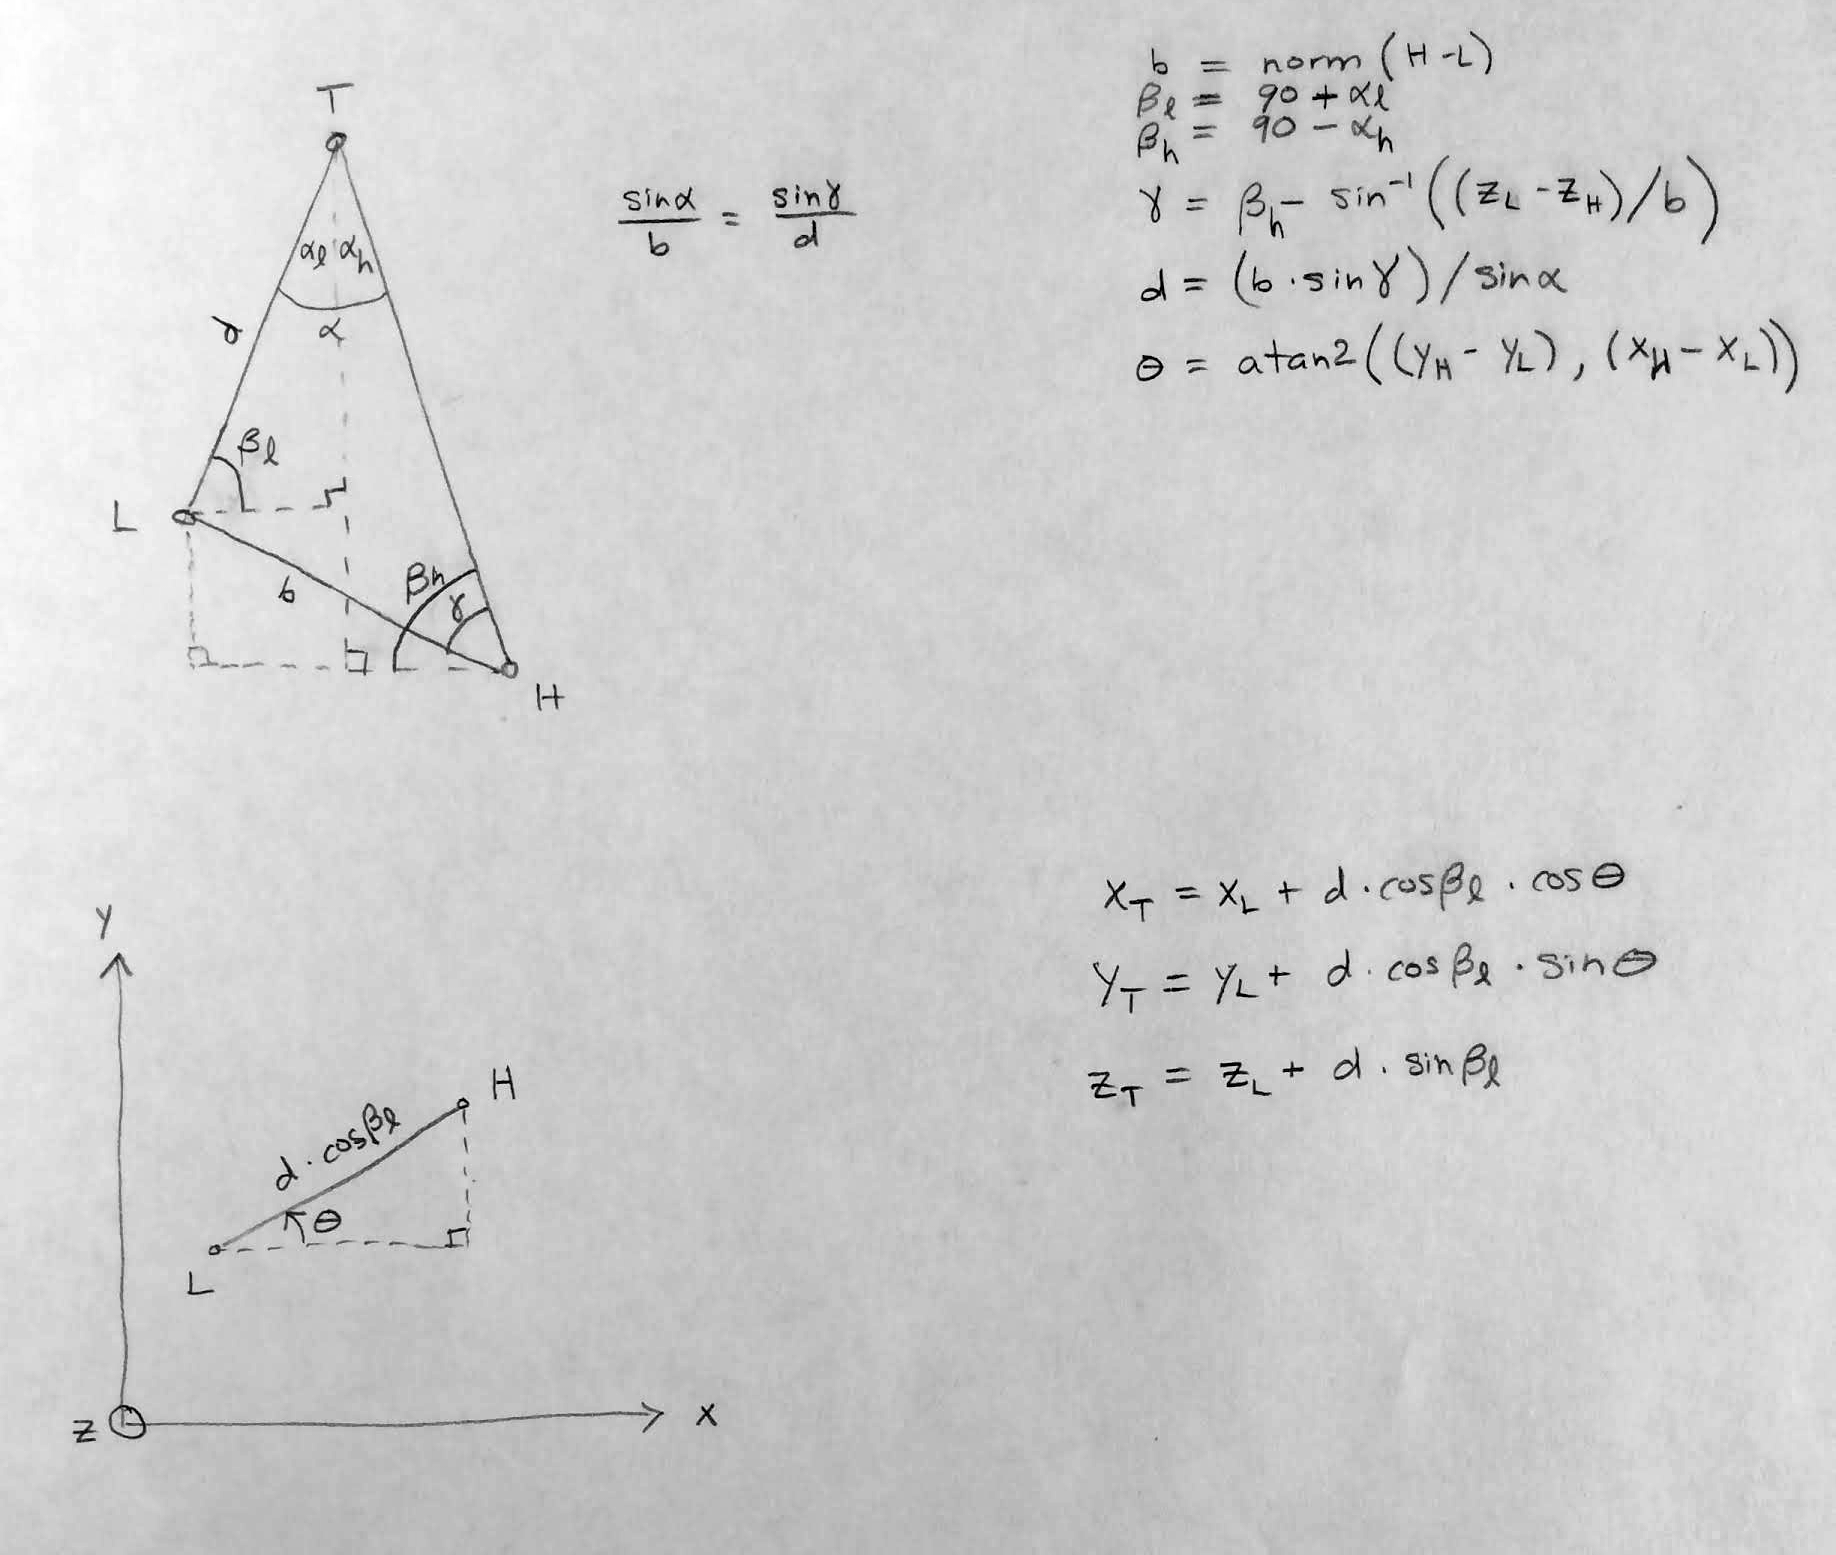 T
αℓ αh
α
d
βℓ
L
b
βh
γ
H
sinα/b = sinγ/d
b = norm(H-L)
βℓ = 90 + αℓ
βh = 90 - αh
γ = βh - sin⁻¹((zL - zH)/b)
d = (b · sinγ)/sinα
θ = atan2((yH - yL), (xH - xL))
y
H
d · cosβℓ
θ
L
z
x
xT = xL + d · cosβℓ · cosθ
yT = yL + d · cosβℓ · sinθ
zT = zL + d · sinβℓ